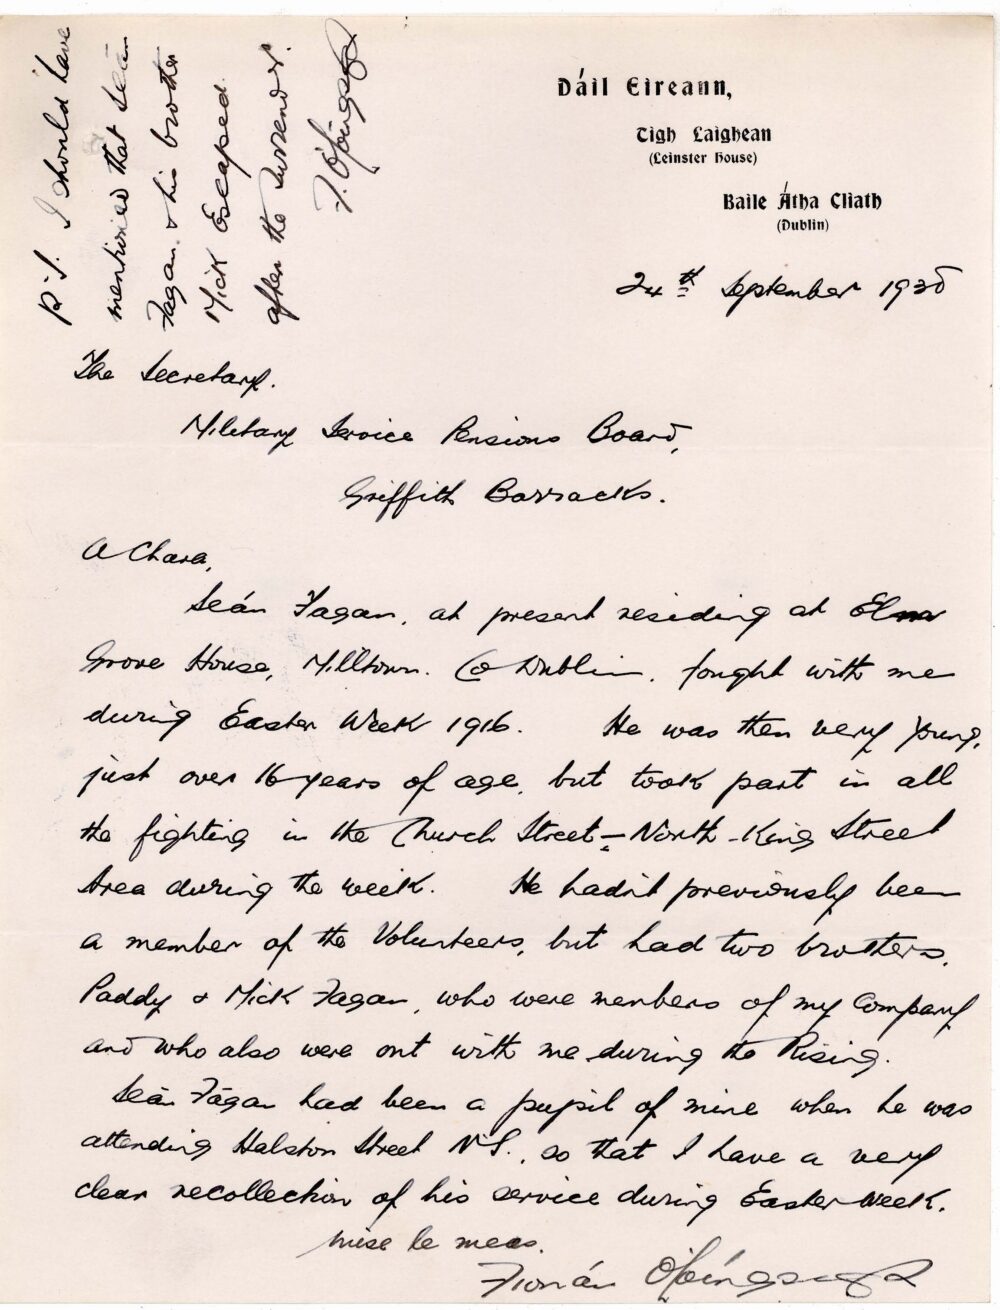 Dáil Eireann,
Tigh Laighean
(Leinster House)
Baile Átha Cliath
(Dublin)
24th September
The Secretary.
Military Service Pensions Board,
Griffith Barracks.
A Chara,
Seán Fagan, at present residing at Elm
Grove House, Milltown. Co Dublin, fought with me
during Easter Week 1916. He was then very young,
just over 16 years of age, but took part in all
the fighting in the Church Street - North-King Street
Area during the week. He hadn't previously been
a member of the Volunteers, but had two brothers,
Paddy & Mick Fagan, who were members of my Company
and who also were out with me during the Rising.
Seán Fagan had been a pupil of mine when he was
attending Halston Street N.S., so that I have a very
clear recollection of his service during Easter Week.
Mise le meas.
Fionán
P.S. I should have
mentioned that Seán
Fagan & his brother
Mick Escaped
after the Surrender.
F.